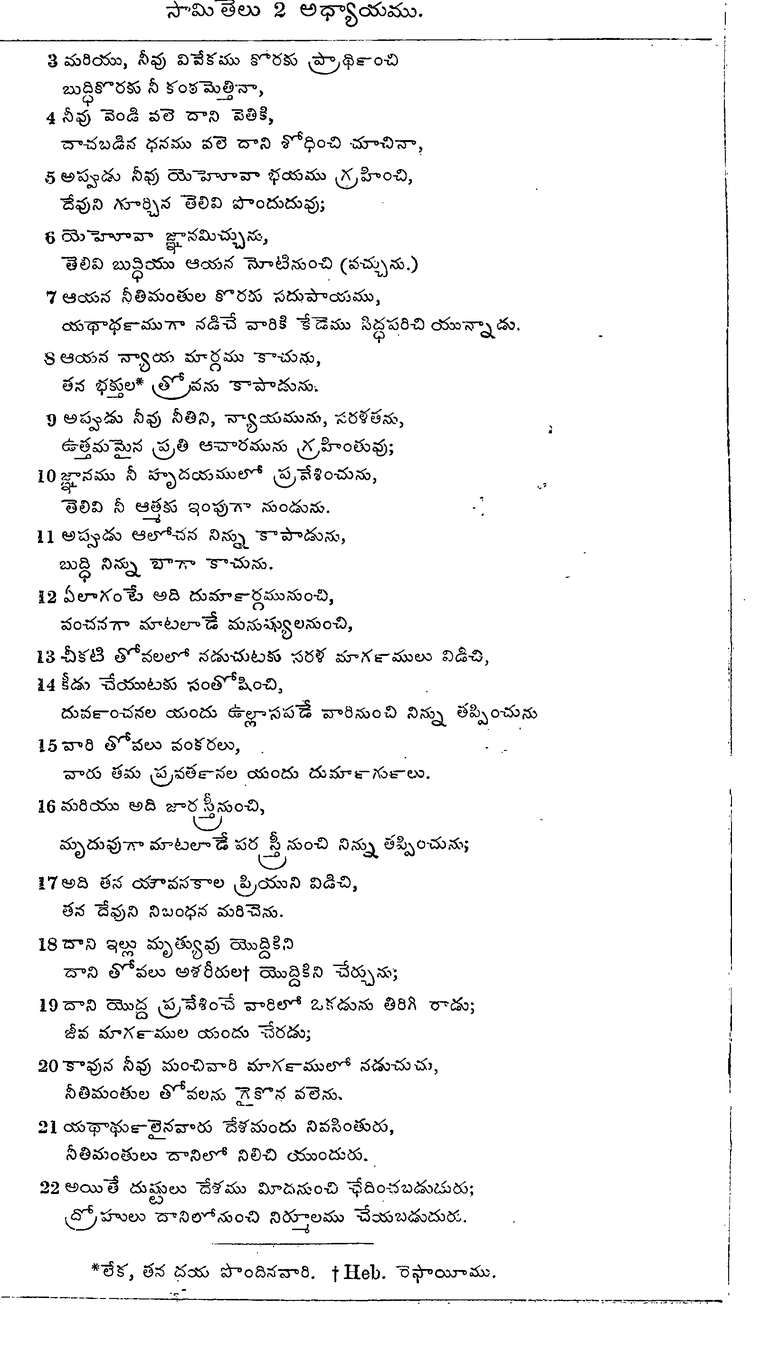 సామితెలు 2 అధ్యాయము.
3 మరియు, నీవు వివేకము కొరకు ప్రార్థించి
బుద్ధికొరకు నీ కంఠమెత్తినా,
4 నీవు వెండి వలె దాని వెతికి,
దాచబడిన ధనము వలె దాని శోధించి చూచినా,
5 అప్పుడు నీవు యెహెూవా భయము గ్రహించి,
దేవుని గూర్చిన తెలివి పొందుదువు;
6 యెహెూవా జ్ఞానమిచ్చును,
తెలివి బుద్ధియు ఆయన నోటినుంచి (వచ్చును.)
7 ఆయన నీతిమంతుల కొరకు సదుపాయము,
యథార్థముగా నడిచే వారికి కేడెము సిద్ధపరిచి యున్నాడు.
8 ఆయన న్యాయ మార్గము కాచును,
తన భక్తుల* త్రోవను కాపాడును.
9 అప్పుడు నీవు నీతిని, న్యాయమును, సరళతను,
ఉత్తమమైన ప్రతి ఆచారమును గ్రహింతువు;
10 జ్ఞానము నీ హృదయములో ప్రవేశించును,
తెలివి నీ ఆత్మకు ఇంపుగా నుండును.
11 అప్పుడు ఆలోచన నిన్ను కాపాడును,
బుద్ధి నిన్ను బాగా కాచును.
12 ఏలాగంటే అది దుర్మార్గమునుంచి,
వంచనగా మాటలాడే మనుష్యులనుంచి,
13 చీకటి తోవలలో నడుచుటకు సరళ మార్గములు విడిచి,
14 కీడు చేయుటకు సంతోషించి,
దుర్వంచనల యందు ఉల్లాసపడే వారినుంచి నిన్ను తప్పించును
15 వారి తోవలు వంకరలు,
వారు తమ ప్రవర్తనల యందు దుర్మార్గులు.
16 మరియు అది జార స్త్రీనుంచి,
మృదువుగా మాటలాడే పర స్త్రీ నుంచి నిన్ను తప్పించును;
17 అది తన యౌవనకాల ప్రియుని విడిచి,
తన దేవుని నిబంధన మరిచెను.
18 దాని ఇల్లు మృత్యువు యొద్దికిని
దాని తోవలు అశరీరుల† యొద్దికిని చేర్చును;
19 దాని యొద్ద ప్రవేశించే వారిలో ఒకడును తిరిగి రాడు;
జీవ మార్గముల యందు చేరడు;
20 కావున నీవు మంచివారి మార్గములో నడుచుచు,
నీతిమంతుల తోవలను గైకొన వలెను.
21 యథార్థులైనవారు దేశమందు నివసింతురు,
నీతిమంతులు దానిలో నిలిచి యుందురు.
22 అయితే దుష్టులు దేశము మీదనుంచి ఛేదించబడుదురు;
ద్రోహులు దానిలోనుంచి నిర్మూలము చేయబడుదురు.
*లేక, తన దయ పొందినవారి. †Heb. రెఫాయీము.